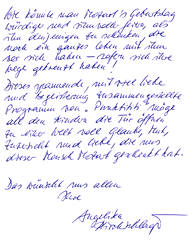 Wie könnte man Mozart's Geburtstag
würdiger und sinnvoller feiern, als
ihn denjenigen zu schenken, die
noch ein ganzes Leben mit ihm
vor sich haben – sofern sich ihre
Wege gekreuzt haben!
Dieses spannende, mit viel Liebe
und Begeisterung zusammengestellte
Programm von „Punktitis" möge
all den Kindern die Tür öffnen
zu einer Welt voll Glaube, Mut,
Zuversicht und Liebe, die uns
dieser Mensch Mozart geschenkt hat.
Das wünscht uns allen
Ihre
Angelika
Kirchschlager